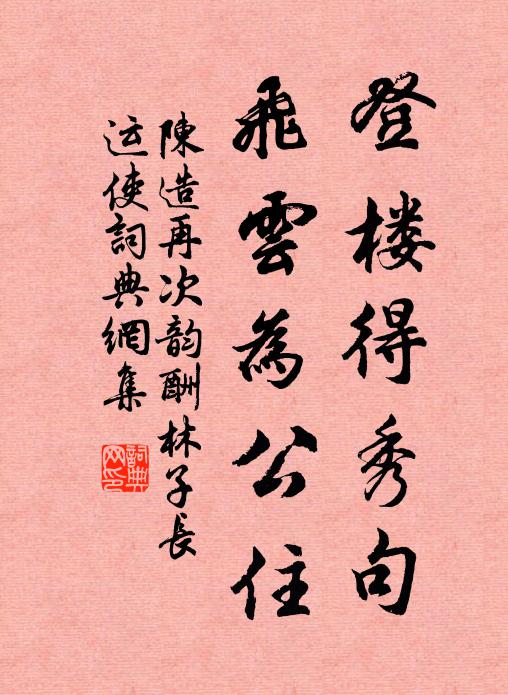 登楼得秀句
飛雲為公住
陳造再次韵酬林子長
运使詞典網集
詞典网印